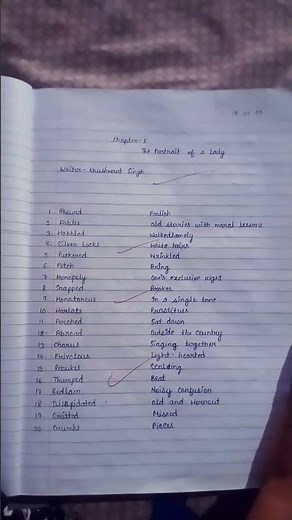 Chapter-1
The Portrait of a Lady
Writer- Khushwant Singh
1. Absurd Foolish
2. Fables old stories with moral lessons
3. Hobbled Walked lamely
4. Silver Locks White hairs
5. Puckered Wrinkled
6. Fetch Bring
7. Monopoly One's exclusive right
8. Snapped Broken
9. Monotonous In a single tone
10. Harlots Prostitutes
11. Perched Sat down
12. Abroad Outside the Country
13. Chorus Singing together
14. Frivolous Light-hearted
15. Rebukes Scolding
16. Thumped Beat
17. Bedlam Noisy Confusion
18. Dilapidated old and Wornout
19. Omitted Missed
20. Crumbs Pieces